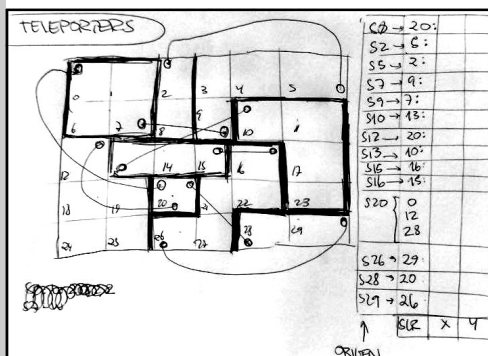 TELEPORTERS
0 1 2 3 4 5
6 7 8 9 10
12 14 15 16 17
18 19 20 21 22 23
24 25 26 27 28 29
S2 → 
S5 → 2:
S7 → 9:
S9 → 7:
S10 → 13:
S12 → 20:
S13 → 10:
S15 → 16:
S16 → 15:
S20 { 0
12
28
S26 → 29:
S28 → 20
S29 → 26
X Y
ORIGEN